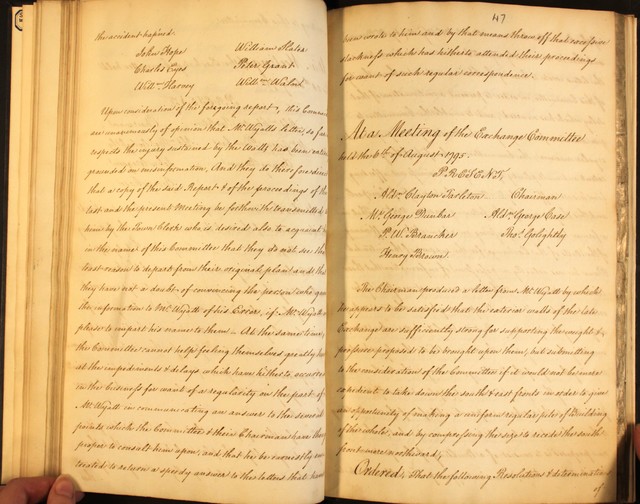 the accident hapined.
John Hope William Slater
Charles Eyes Peter Grant
Willm Harvey Willm Walad
Upon consideration of the foregoing report, this Comm
are unanimously of opinion that Mr Wyatts letter, so far
respects the injury sustained by the Walls has been entire
grounded in misinformation, And they do therefore order
that a copy of the said Report & of the proceedings of the
last and the present Meeting be forthwith transmitted
him by the Town Clerk who is desired also to acquaint
in the name of this Committee that they do not see the
least reason to depart from their original plan and that
they have not a doubt of convincing the person who gave
the information to Mr Wyatt of his Error, if Mr Wyatt
please to impart his name to them – At the same time
the Committee cannot help feeling themselves greatly hurt
at the impediments & delays which have hitherto occurred
in the business for want of a regularity on the part of
Mr Wyatt in communicating an answer to the several
points which the Committee & their Chairman have thought
proper to consult him upon, and that he be earnestly
treated to return a speedy answer to the letters that have
47
been wrote to him and by that means throw off that
darkness which has hitherto attended their proceedings
for want of such regular correspondence.
At a Meeting of the Exchange Committee
held the 6th of August 1795.
PRESENT
Aldn Clayton Tarleton Chairman
Mr George Dunbar Aldn George Case
P. W. Brancker Thos Golightly
Henry Brown
The Chairman produced a letter from Mr Wyatt by which
he appears to be satisfied that the exterior walls of the late
Exchange are sufficiently strong for supporting the weight &
pressure proposed to be brought upon them, but submitting
to the consideration of the Committee if it would not be more
expedient to take down the south & east fronts in order to give
an opportunity of making a uniform regular pile of Building
of the whole, and by compressing the size to recede the south
front more northward;
Ordered, That the following Resolutions & determinations
of